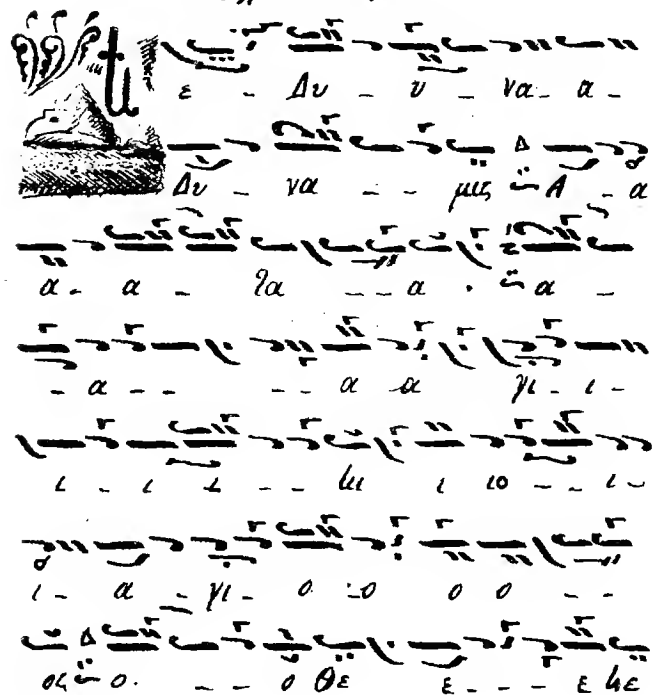 ε - Δυ - υ - να- α-
Δυ - να - - μις Α - α
α- α - - - α · α -
- α - - - - α α γι - ι -
ι - ι - ι - - ι ιο - - ι -
ι - α - γι - ο -ο ο ο - -
ος ο. - - ο Θε ε - - - ε